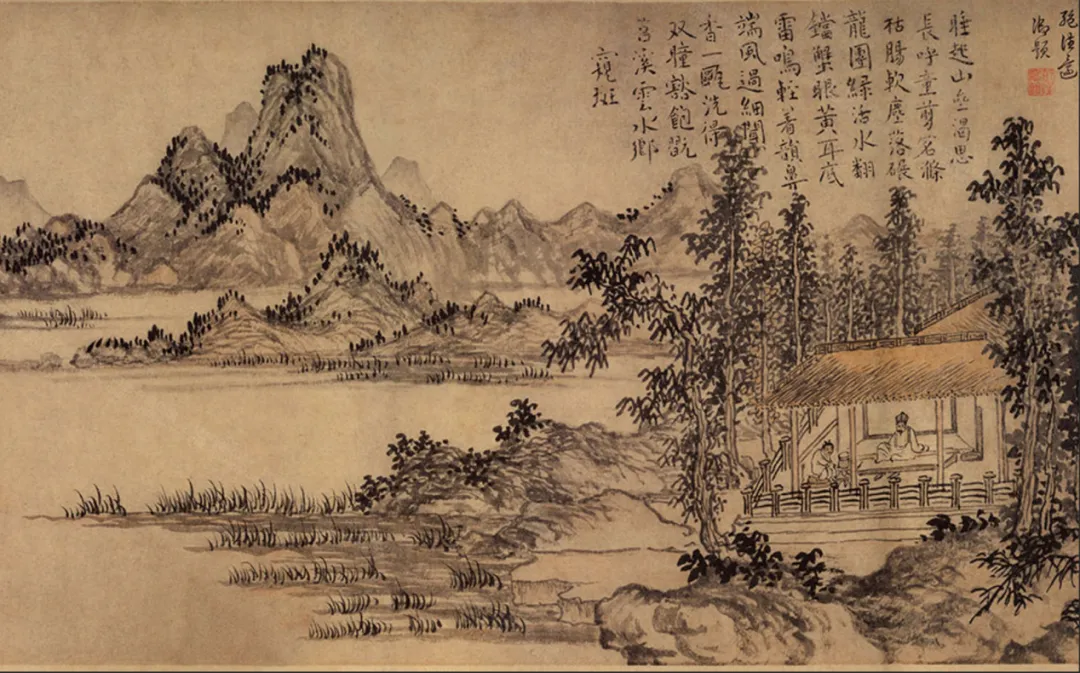 御題
睡起山齋渴思
長呼童剪茗滌
枯腸軟塵落碾
龍團緑活水翻
鐺蟹眼黃耳底
雷鳴輕着韻鼻
端風過細聞
香一甌洗得
双瞳豁飽翫
苕溪雲水鄉
窺班